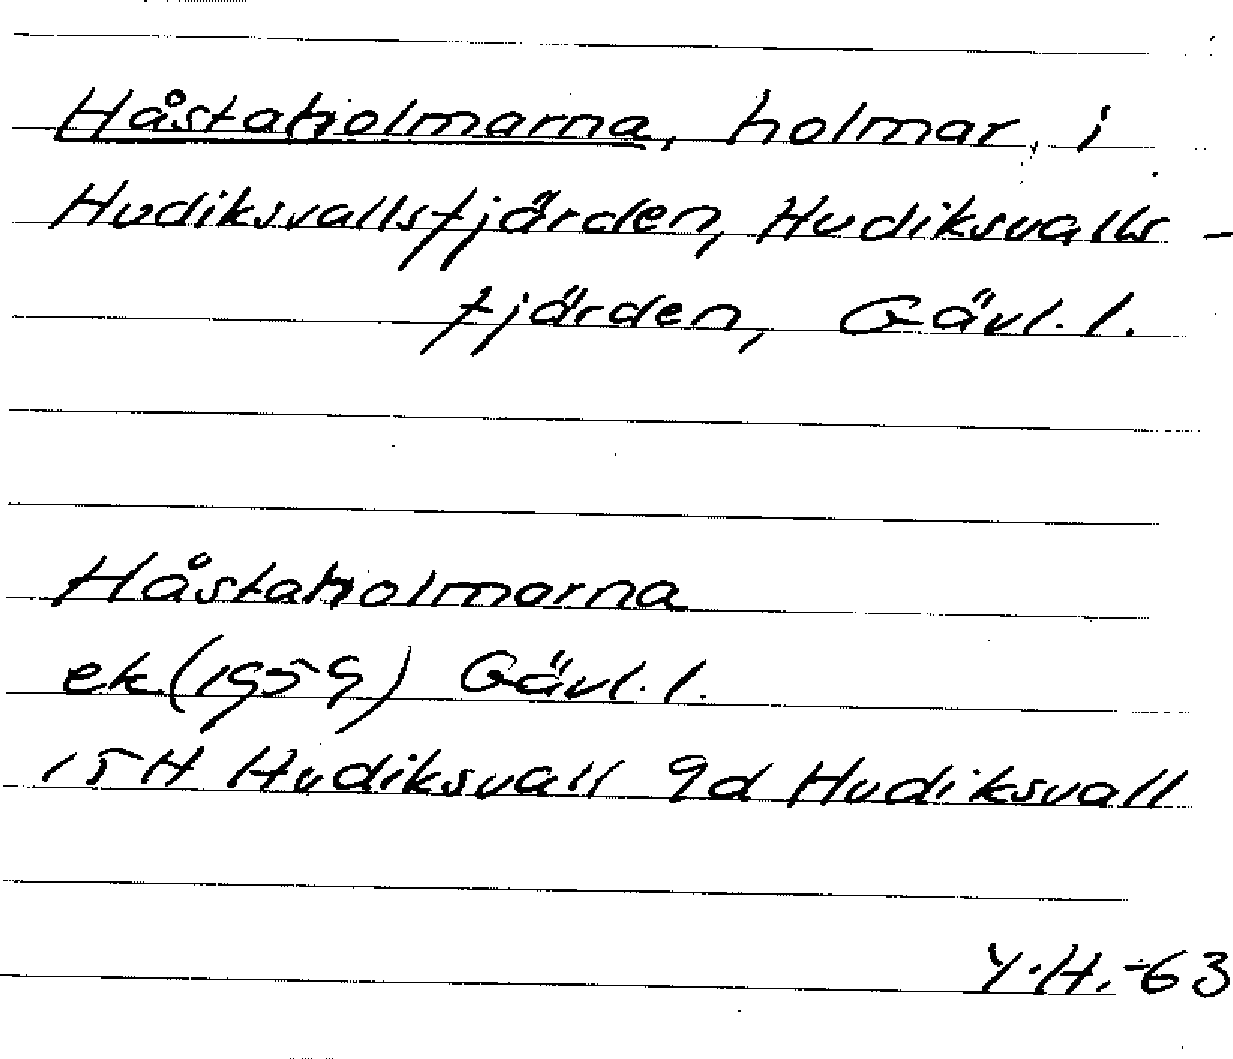 Håstaholmarna, holmar, i
Hudiksvallsfjärden, Hudiksvalls-
fjärden, Gävl. l.
Håstaholmarna
ek (1959) Gävl. l.
15H Hudiksvall 9d Hudiksvall
Y.H.-63